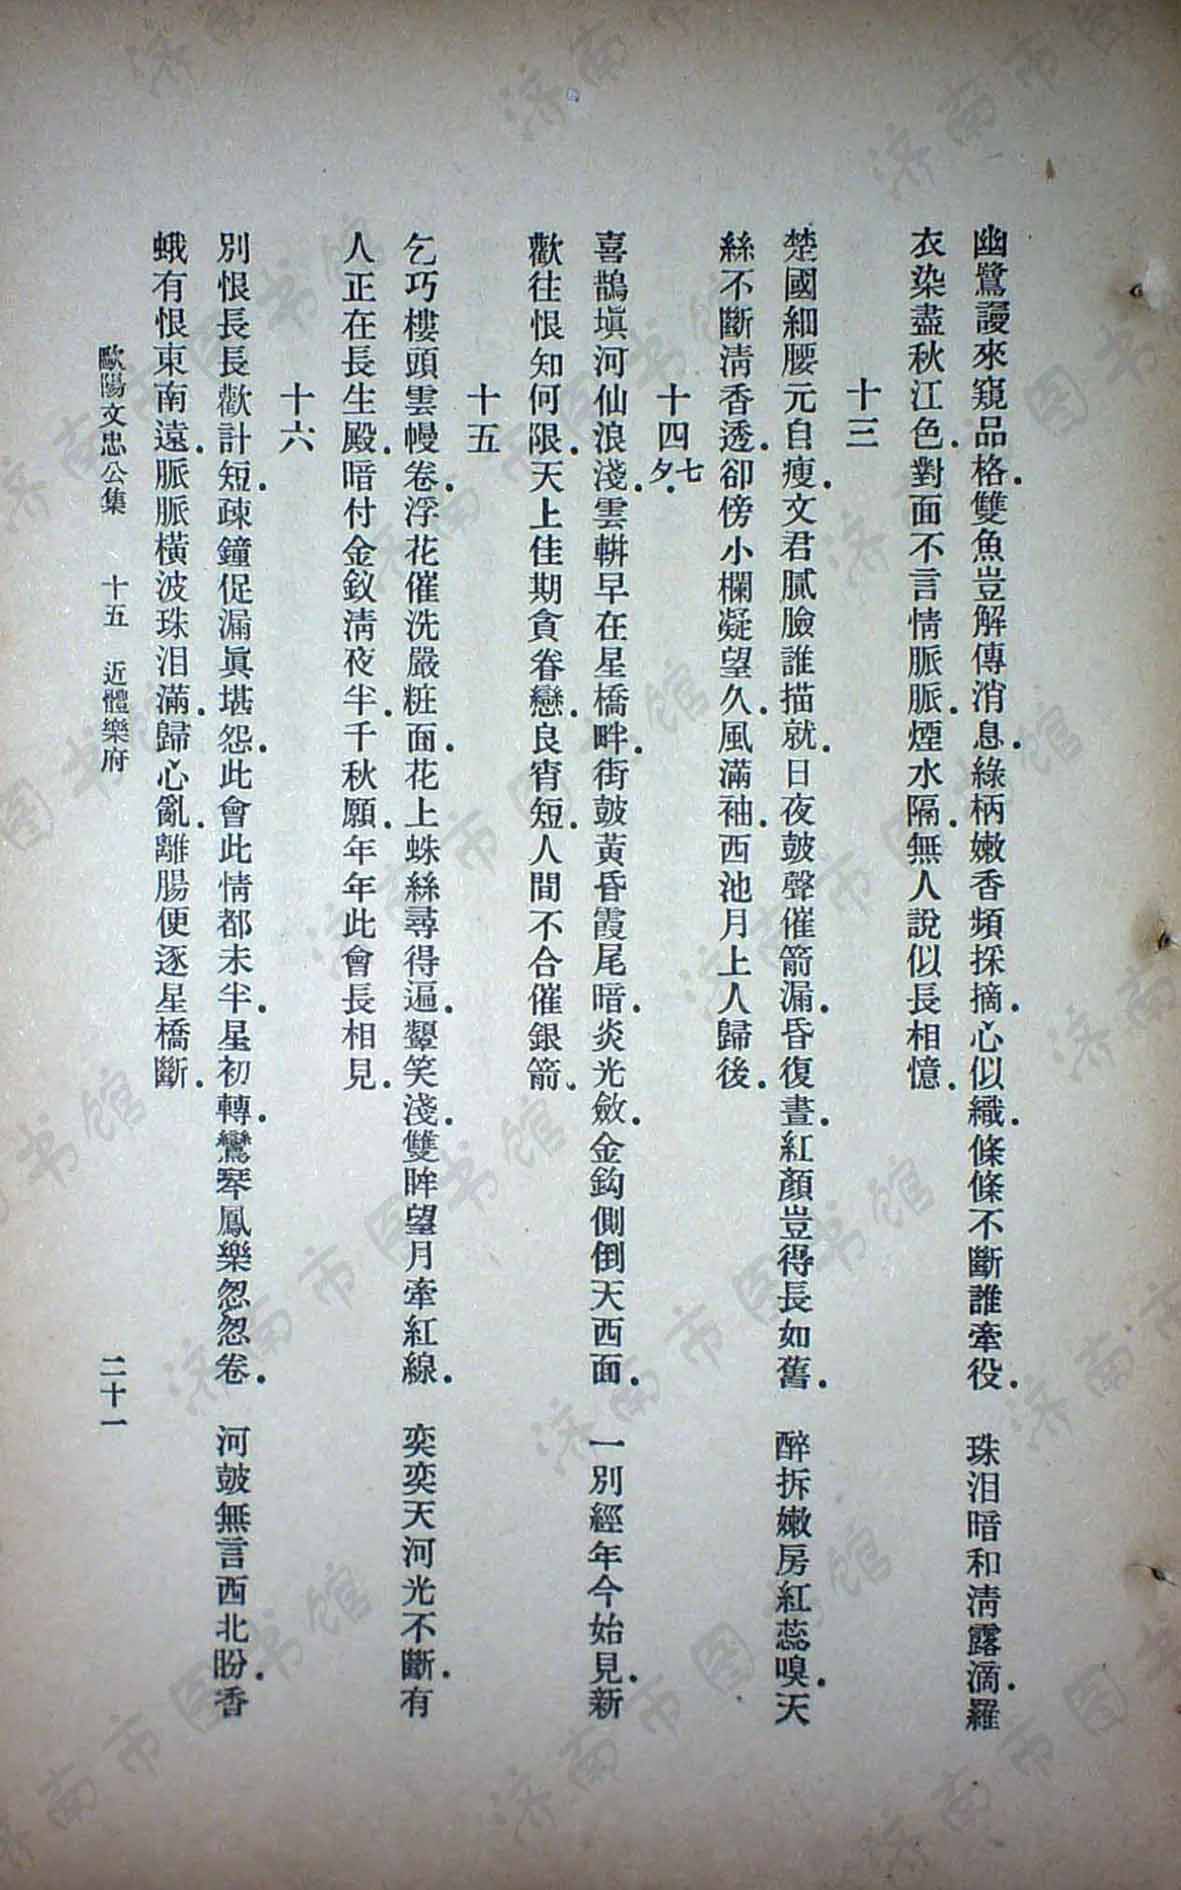 幽鷺謾來窺品格．雙魚豈解傳消息．綠柄嫩香頻採摘．心似織．條條不斷誰牽役．　珠泪暗和淸露滴．羅
衣染盡秋江色．對面不言情脈脈．煙水隔．無人說似長相憶．
十三
楚國細腰元自瘦．文君膩臉誰描就．日夜皷聲催箭漏．昏復晝．紅顏豈得長如舊．　醉拆嫩房紅蕊嗅．天
絲不斷淸香透．卻傍小欄凝望久．風滿袖．西池月上人歸後．
十四七夕．
喜鵲塡河仙浪淺．雲軿早在星橋畔．街皷黃昏霞尾暗．炎光斂．金鈎側倒天西面．　一別經年今始見．新
歡往恨知何限．天上佳期貪眷戀．良宵短．人間不合催銀箭．
十五
乞巧樓頭雲幔卷．浮花催洗嚴粧面．花上蛛絲尋得遍．顰笑淺．雙眸望月牽紅線．　奕奕天河光不斷．有
人正在長生殿．暗付金釵淸夜半．千秋願．年年此會長相見．
十六
別恨長長歡計短．疎鐘促漏眞堪怨．此會此情都未半．星初轉．鸞琴鳳樂怱怱卷．　河皷無言西北盼．香
蛾有恨東南遠．脈脈橫波珠泪滿．歸心亂．離腸便逐星橋斷．
歐陽文忠公集　十五　近體樂府　二十一
济南市图书馆